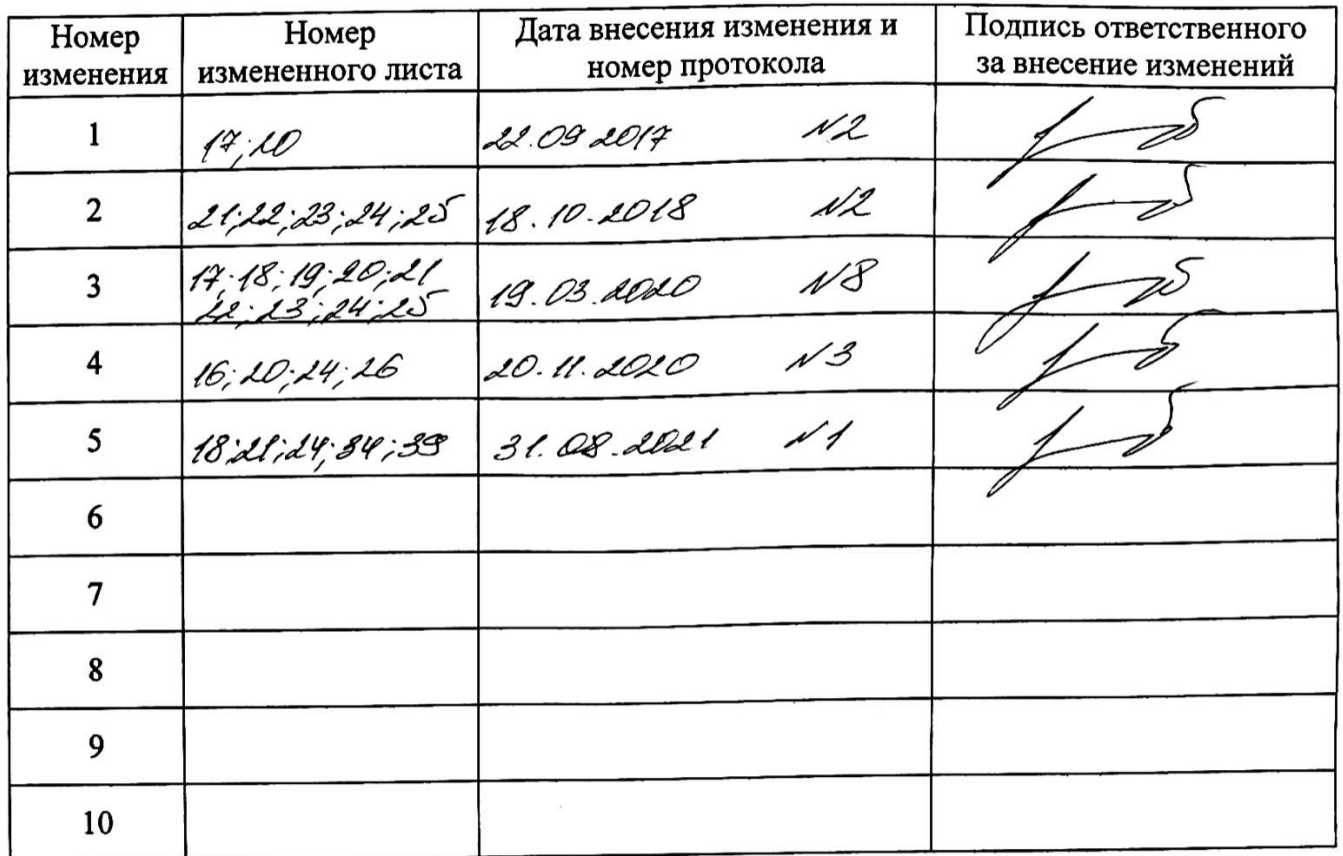 Номер изменения Номер измененного листа Дата внесения изменения и номер протокола Подпись ответственного за внесение изменений
1 17; 20 22.09.2017 N2
2 21;22;23;24;25 18.10.2018 N2
3 17;18;19;20;21 19.03.2020 N8
22;23;24;25
4 16;20;24;26 20.11.2020 N3
5 18;21;24;34;39 31.08.2021 N1
6
7
8
9
10